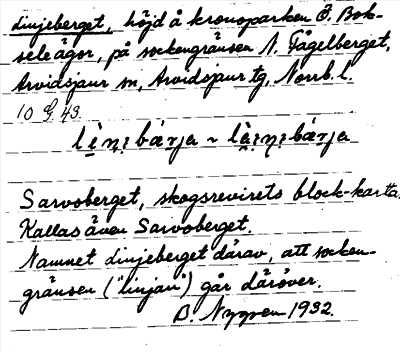 Linjeberget, höjd å kronoparken Ö. Bok-
seleägor, på sockengränsen N. Fågelberget,
Arvidsjaur sn, Arvidsjaur tg, Norrb. l.
10 G 43
Sarvoberget, skogsrevirets block-karta.
Kallas även Sarvoberget.
Namnet Linjeberget därav, att socken-
gränsen ("linjan") går däröver.
B. Nygren 1932.